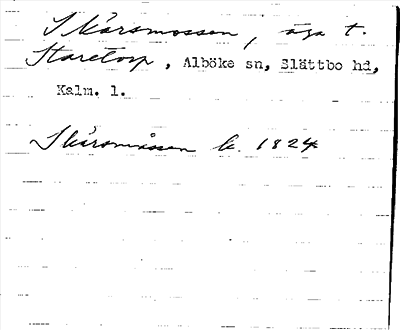 Skärsmossen, äga t.
Staretorp, Alböke sn, Slättbo hd,
Kalm. l.
Skärsmåssen k. 1824